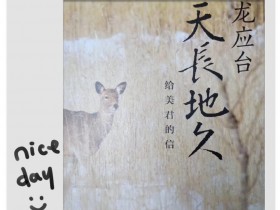 龙应台
天長地久
给美君的信
nice
day
:)